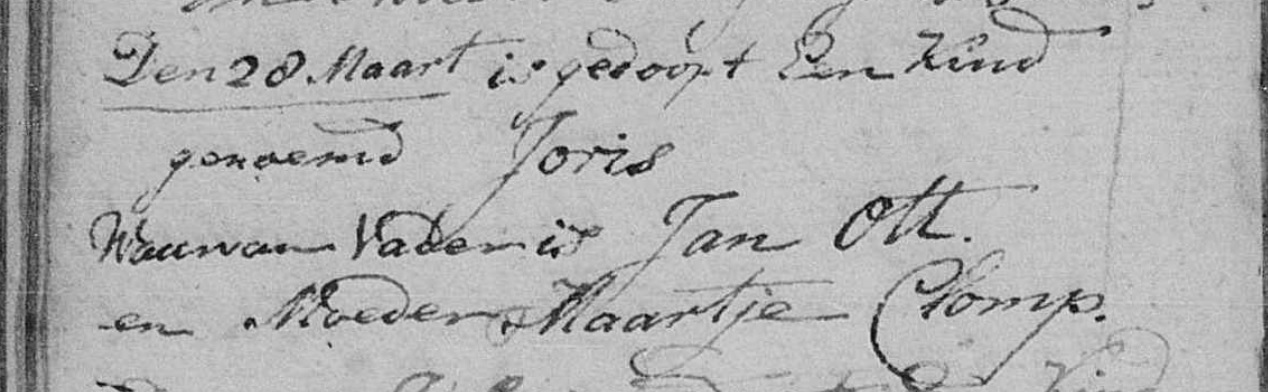 Den 28 Maart is gedoopt Een Kind
genoemd Joris
Waarvan Vader is Jan Ott.
en Moeder Maartje Clomp.